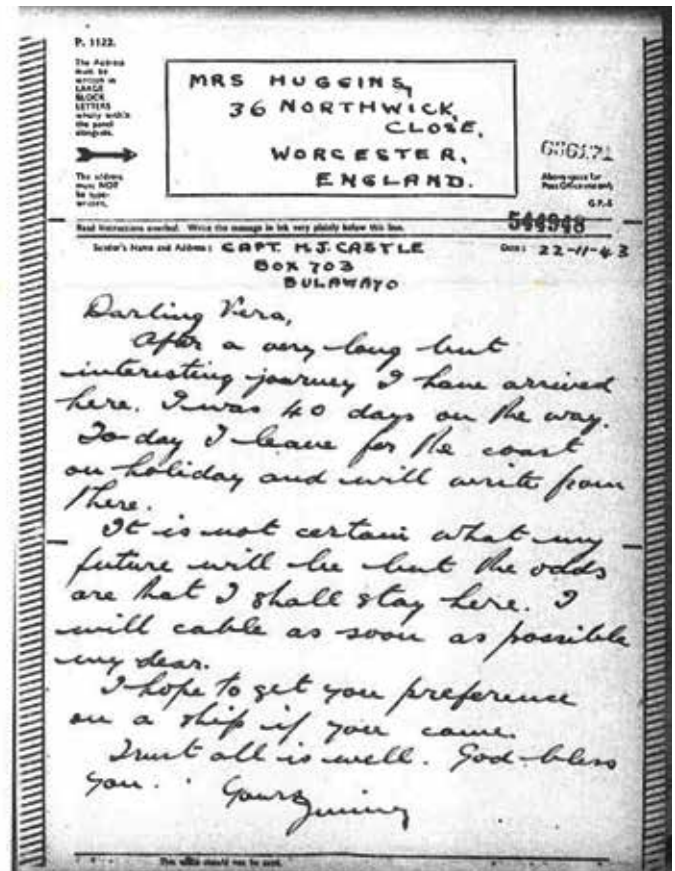 P. 1122.
The Address
must be
written in
LARGE
BLOCK
LETTERS
wholly within
the panel
alongside.
The address
must NOT
be type-
written.
MRS HUGGINS,
36 NORTHWICK,
CLOSE,
WORCESTER,
ENGLAND.
656171
Above space for
Post Office use only
G.P.S
544948
Read instructions overleaf. Write the message in ink very plainly below this line.
Sender's Name and Address: CAPT. H.J. CASTLE
BOX 703
BULAWAYO
Date: 22-11-43
Darling Vera,
After a very long but
interesting journey I have arrived
here. I was 40 days on the way.
To-day I leave for the coast
on holiday and will write from
there.
It is not certain what my
future will be but the odds
are that I shall stay here. I
will cable as soon as possible
my dear.
I hope to get you preference
on a ship if you come.
Trust all is well. God bless
you.
Yours
Jimmy
This should not be sent.